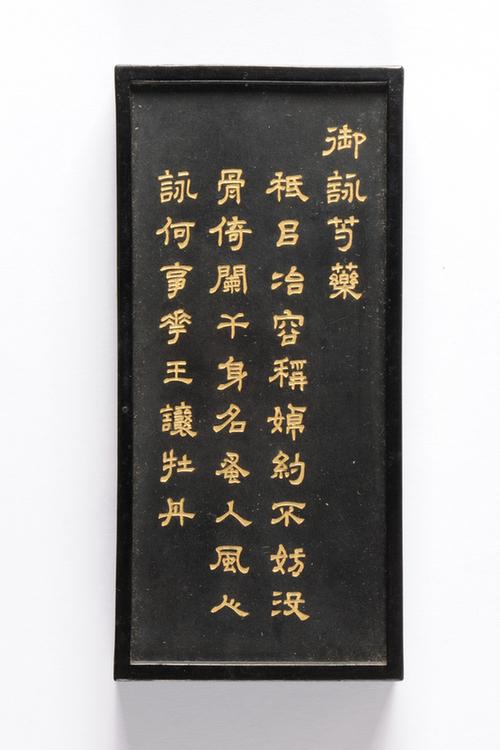 御詠芍藥
秪㠯冶容稱婥約不妨沒
骨倚闌干身名蚤入風人
詠何事華王讓牡丹